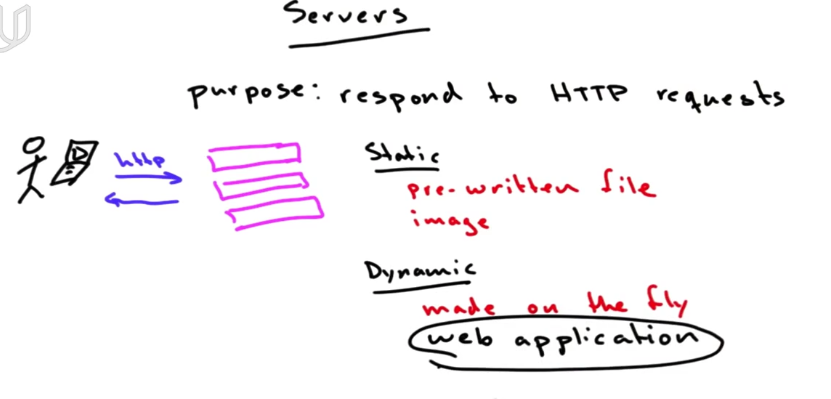 Servers
purpose: respond to HTTP requests
http
Static
pre-written file
image
Dynamic
made on the fly
web application